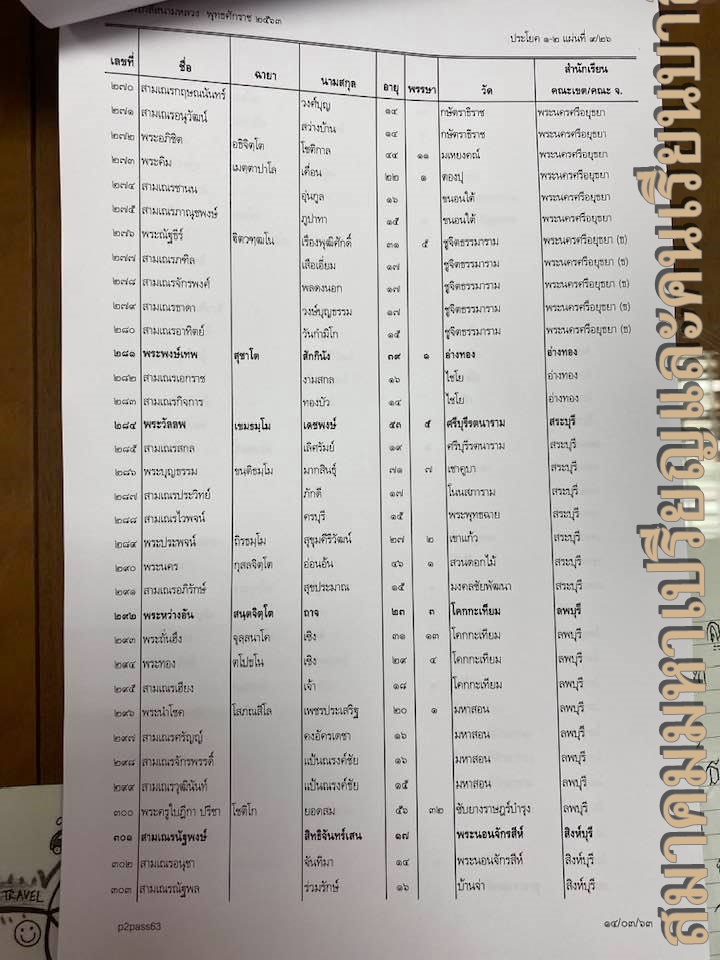 พุทธศักราช ๒๕๖๓
ประโยค ๑-๒ แผ่นที่ ๙/๒๖
เลขที่ ชื่อ ฉายา นามสกุล อายุ พรรษา วัด สำนักเรียน คณะเขต/คณะ จ.
๒๗๐ สามเณรกฤษณนันทร์ วงค์บุญ ๑๔ กษัตราธิราช พระนครศรีอยุธยา
๒๗๑ สามเณรอนุวัฒน์ สว่างบ้าน ๑๔ กษัตราธิราช พระนครศรีอยุธยา
๒๗๒ พระอภิชิต อธิจิตฺโต โชติกาล ๔๔ ๑๑ มเหยงคณ์ พระนครศรีอยุธยา
๒๗๓ พระคิม เมตฺตาปาโล เตื่อน ๒๒ ๑ ตองปุ พระนครศรีอยุธยา
๒๗๔ สามเณรชานน อุ่นกูล ๑๖ ขนอนใต้ พระนครศรีอยุธยา
๒๗๕ สามเณรภาณุชพงษ์ ภูปาทา ๑๕ ขนอนใต้ พระนครศรีอยุธยา
๒๗๖ พระณัฐธีร์ ฐิตวฑฺฒโน เรืองพุฒิศักดิ์ ๓๑ ๕ ชูจิตธรรมาราม พระนครศรีอยุธยา (ธ)
๒๗๗ สามเณรภฑิล เสือเอี่ยม ๑๗ ชูจิตธรรมาราม พระนครศรีอยุธยา (ธ)
๒๗๘ สามเณรจักรพงศ์ พลดงนอก ๑๗ ชูจิตธรรมาราม พระนครศรีอยุธยา (ธ)
๒๗๙ สามเณรธาดา วงษ์บุญธรรม ๑๗ ชูจิตธรรมาราม พระนครศรีอยุธยา (ธ)
๒๘๐ สามเณรอาทิตย์ วันกำมิโก ๑๕ ชูจิตธรรมาราม พระนครศรีอยุธยา (ธ)
๒๘๑ พระพงษ์เทพ สุชาโต สักกินัง ๓๙ ๑ อ่างทอง อ่างทอง
๒๘๒ สามเณรเอกราช งามสกล ๑๖ ไชโย อ่างทอง
๒๘๓ สามเณรกิจการ ทองบัว ๑๔ ไชโย อ่างทอง
๒๘๔ พระวัลลพ เขมธมฺโม เดชพงษ์ ๕๓ ๕ ศรีบุรีรตนาราม สระบุรี
๒๘๕ สามเณรสกล เลิศรัมย์ ๑๙ ศรีบุรีรตนาราม สระบุรี
๒๘๖ พระบุญธรรม ขนฺติธมฺโม มากสินธุ์ ๗๑ ๗ เขาคูบา สระบุรี
๒๘๗ สามเณรประวิทย์ ภักดี ๑๗ โนนสภาราม สระบุรี
๒๘๘ สามเณรไวพจน์ ครบุรี ๑๕ พระพุทธฉาย สระบุรี
๒๘๙ พระประพจน์ ถิรธมฺโม สุขุมคีรีวัฒน์ ๒๗ ๒ เขาแก้ว สระบุรี
๒๙๐ พระนคร กุสลจิตฺโต อ่อนอ้น ๔๖ ๑ สวนดอกไม้ สระบุรี
๒๙๑ สามเณรอภิรักษ์ สุขประมาณ ๑๕ มงคลชัยพัฒนา สระบุรี
๒๙๒ พระหว่างอัน สนฺตจิตฺโต ถาจ ๒๓ ๓ โคกกะเทียม ลพบุรี
๒๙๓ พระถั่นฮึง จุลฺลนาโค เซิง ๓๑ ๑๓ โคกกะเทียม ลพบุรี
๒๙๔ พระทอง ตโปธโน เซิง ๒๙ ๔ โคกกะเทียม ลพบุรี
๒๙๕ สามเณรเฮียง เจ้า ๑๘ โคกกะเทียม ลพบุรี
๒๙๖ พระนำโชค โสภณสีโล เพชรประเสริฐ ๒๐ ๑ มหาสอน ลพบุรี
๒๙๗ สามเณรศรัญญ์ คงอัครเดชา ๑๖ มหาสอน ลพบุรี
๒๙๘ สามเณรจักรพรรดิ์ แป้นณรงค์ชัย ๑๖ มหาสอน ลพบุรี
๒๙๙ สามเณรวุฒินันท์ แป้นณรงค์ชัย ๑๕ มหาสอน ลพบุรี
๓๐๐ พระครูใบฎีกา ปรีชา โชติโก ยอดสม ๕๖ ๓๒ ซับยางราษฎร์บำรุง ลพบุรี
๓๐๑ สามเณรณัฐพงษ์ สิทธิจันทร์เสน ๑๗ พระนอนจักรสีห์ สิงห์บุรี
๓๐๒ สามเณรอนุชา จันทิมา ๑๔ พระนอนจักรสีห์ สิงห์บุรี
๓๐๓ สามเณรณัฐพล ร่วมรักษ์ ๑๖ บ้านจ่า สิงห์บุรี
p2pass63 ๑๔/๐๓/๖๓
TRAVEL
สมาคมมหาเปรียญและคนเรียนบาลี